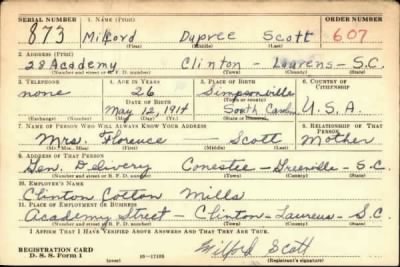 SERIAL NUMBER 1. NAME (Print) ORDER NUMBER
873 Milford Dupree Scott 607
(First) (Middle) (Last)
2. ADDRESS (Print)
28 Academy Clinton - Laurens - S.C.
(Number and street or R. F. D. number) (Town) (County) (State)
3. TELEPHONE 4. AGE IN YEARS 5. PLACE OF BIRTH 6. COUNTRY OF CITIZENSHIP
none 26 Simpsonville
DATE OF BIRTH (Town or county)
May 12, 1914 South Carolina U.S.A.
(Exchange) (Number) (Mo.) (Day) (Yr.) (State or country)
7. NAME OF PERSON WHO WILL ALWAYS KNOW YOUR ADDRESS 8. RELATIONSHIP OF THAT PERSON
Mrs. Florence - Scott Mother
(Mr., Mrs., Miss) (First) (Middle) (Last)
9. ADDRESS OF THAT PERSON
Gen. Delivery Conestee - Greenville - S.C.
(Number and street or R. F. D. number) (Town) (County) (State)
10. EMPLOYER'S NAME
Clinton Cotton Mills
11. PLACE OF EMPLOYMENT OR BUSINESS
Academy Street - Clinton - Laurens - S.C.
(Number and street or R. F. D. number) (Town) (County) (State)
I AFFIRM THAT I HAVE VERIFIED ABOVE ANSWERS AND THAT THEY ARE TRUE.
REGISTRATION CARD
D. S. S. Form 1 (over) Milford Scott
(Registrant's signature)